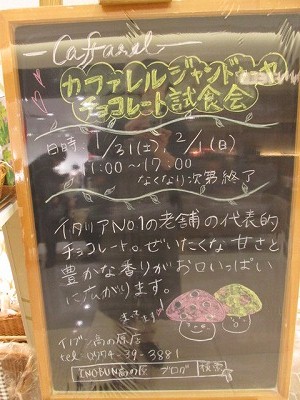 Caffarel
カファレルジャンドゥーヤ
チョコレート試食会
日時 1/31(土), 2/1(日)
11:00~17:00
なくなり次第終了
イタリアNO.1の老舗の代表的
チョコレート。ぜいたくな甘さと
豊かな香りがお口いっぱい
に広がります。
まってます
イノブン高の原店
tel 0974-39-3881
INOBUN高の原 ブログ 検索